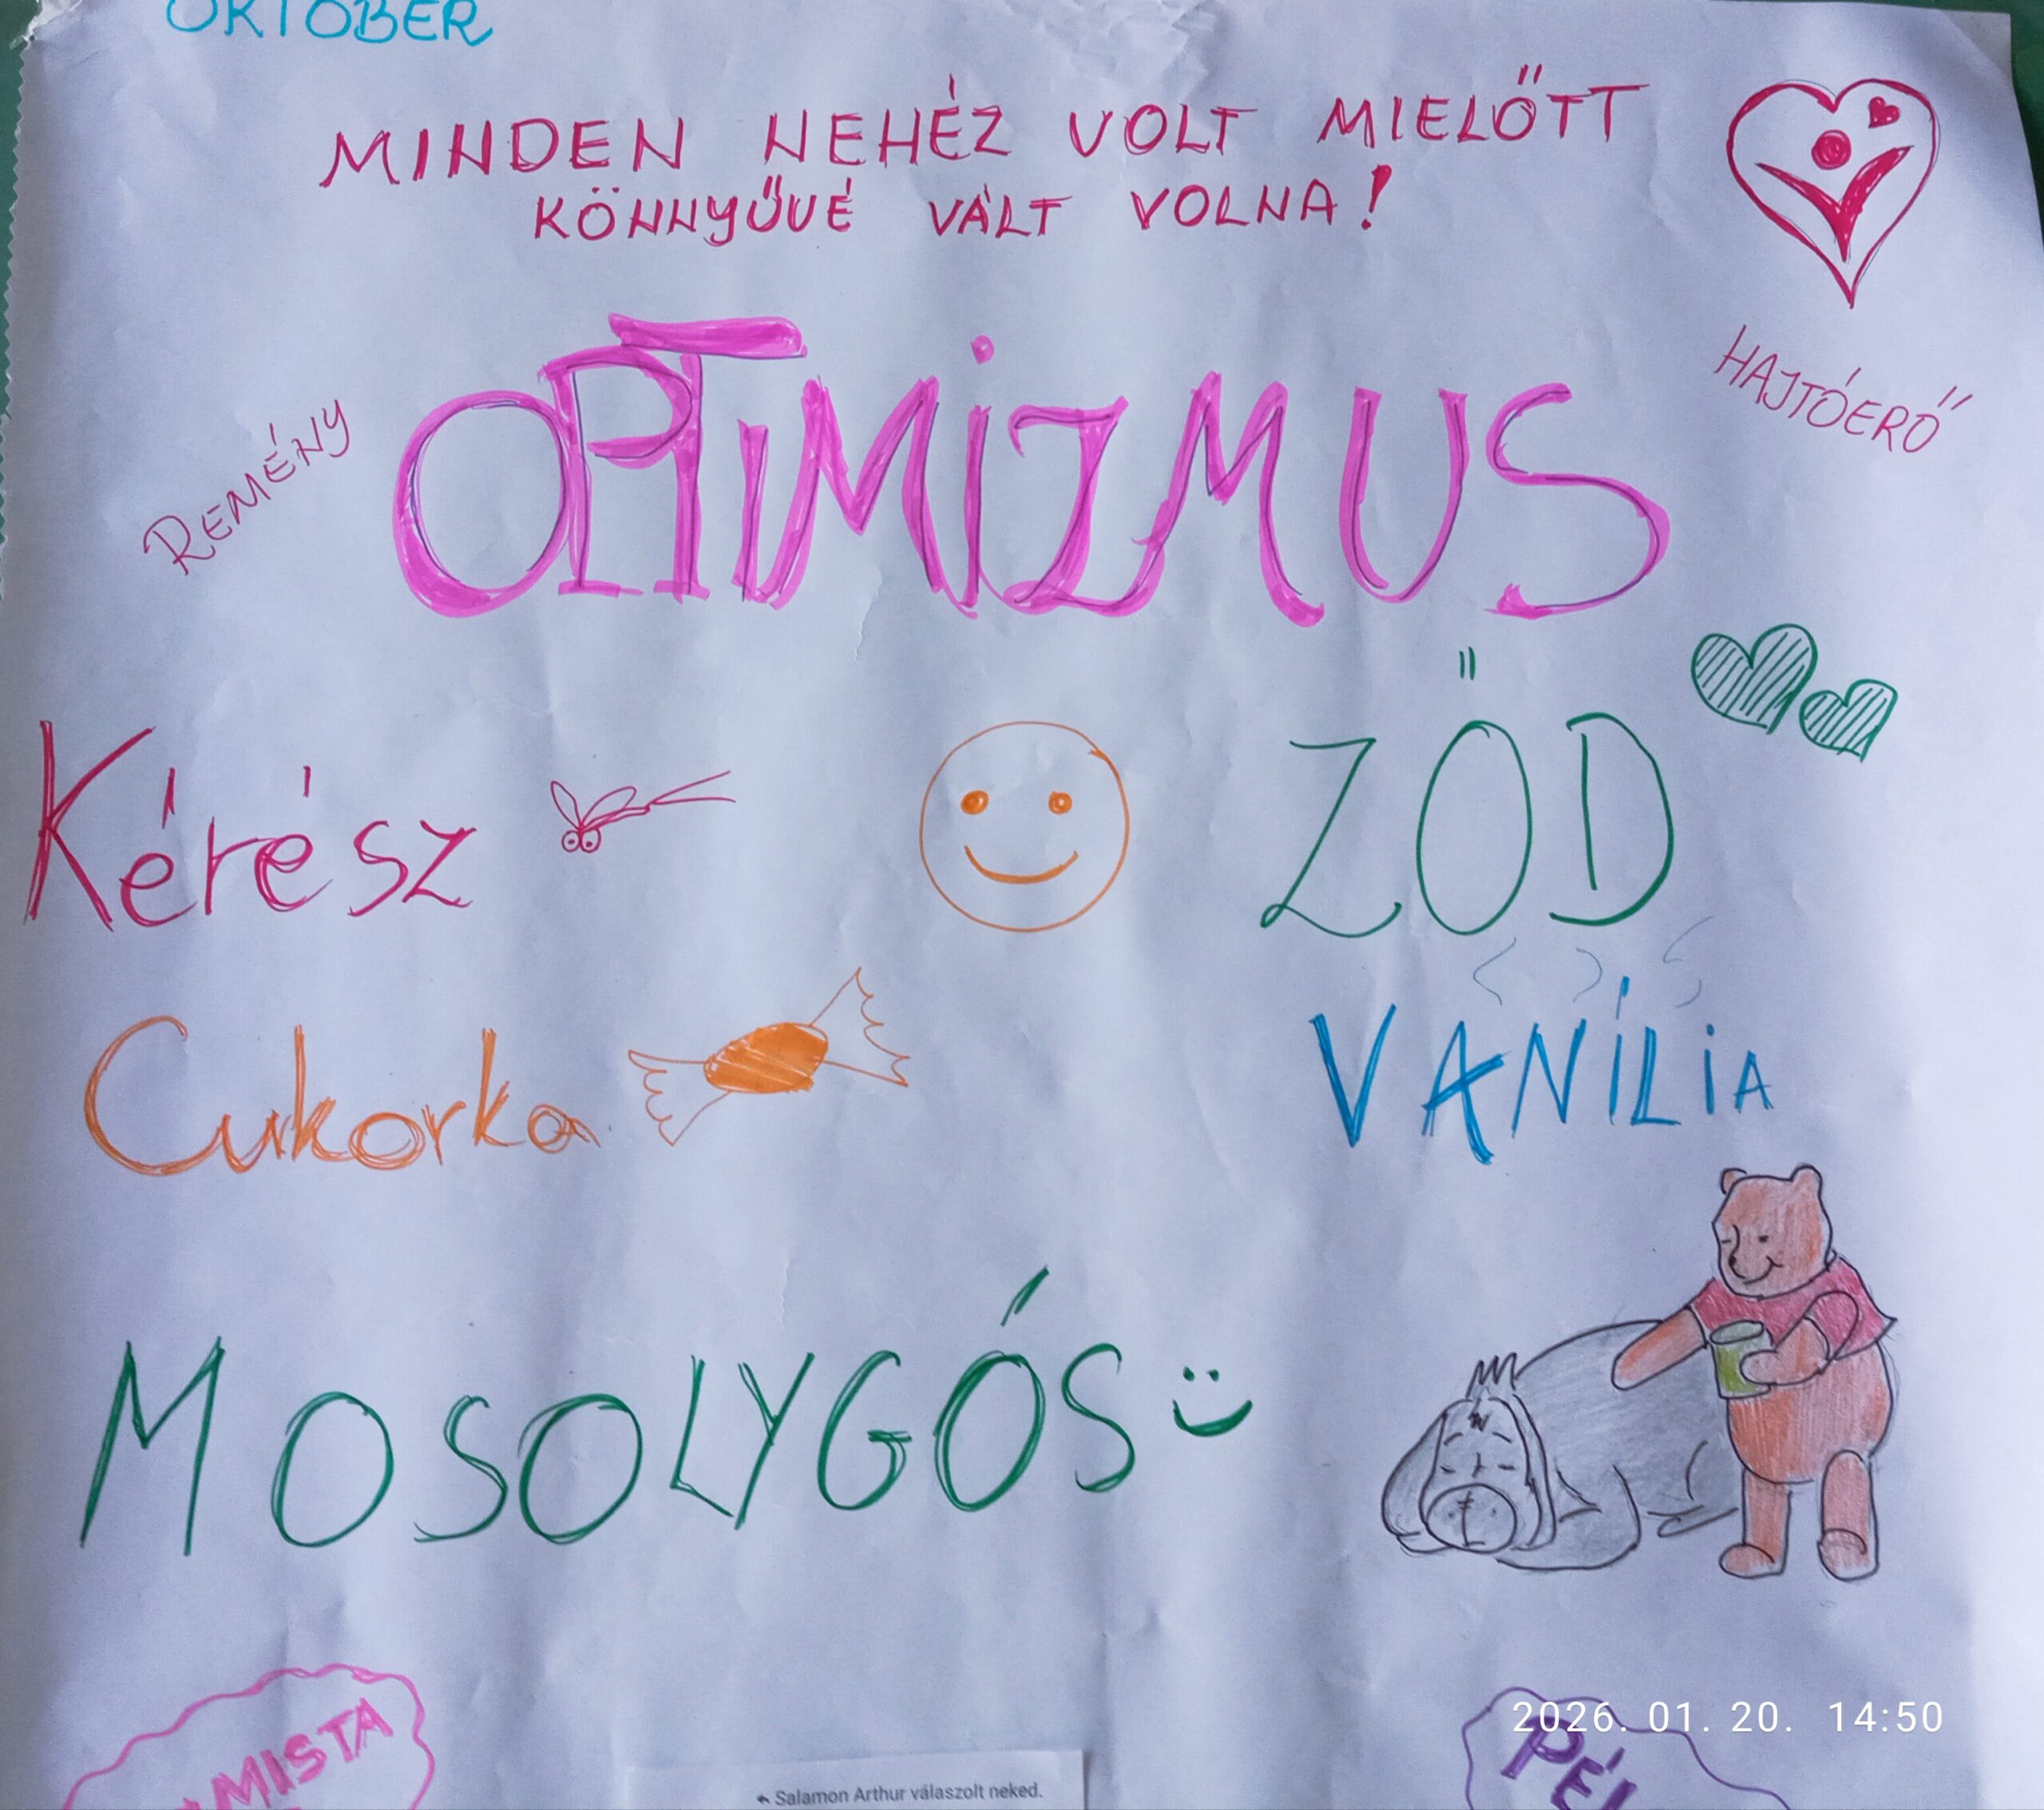 OKTÓBER
MINDEN NEHÉZ VOLT MIELŐTT
KÖNNYŰVÉ VÁLT VOLNA!
HAJTÓERŐ
REMÉNY
OPTIMIZMUS
Kérész
ZŐD
Cukorka
VANÍLiA
MOSOLYGÓS
MISTA
2026. 01. 20. 14:50
PÉL
Salamon Arthur válaszolt neked.